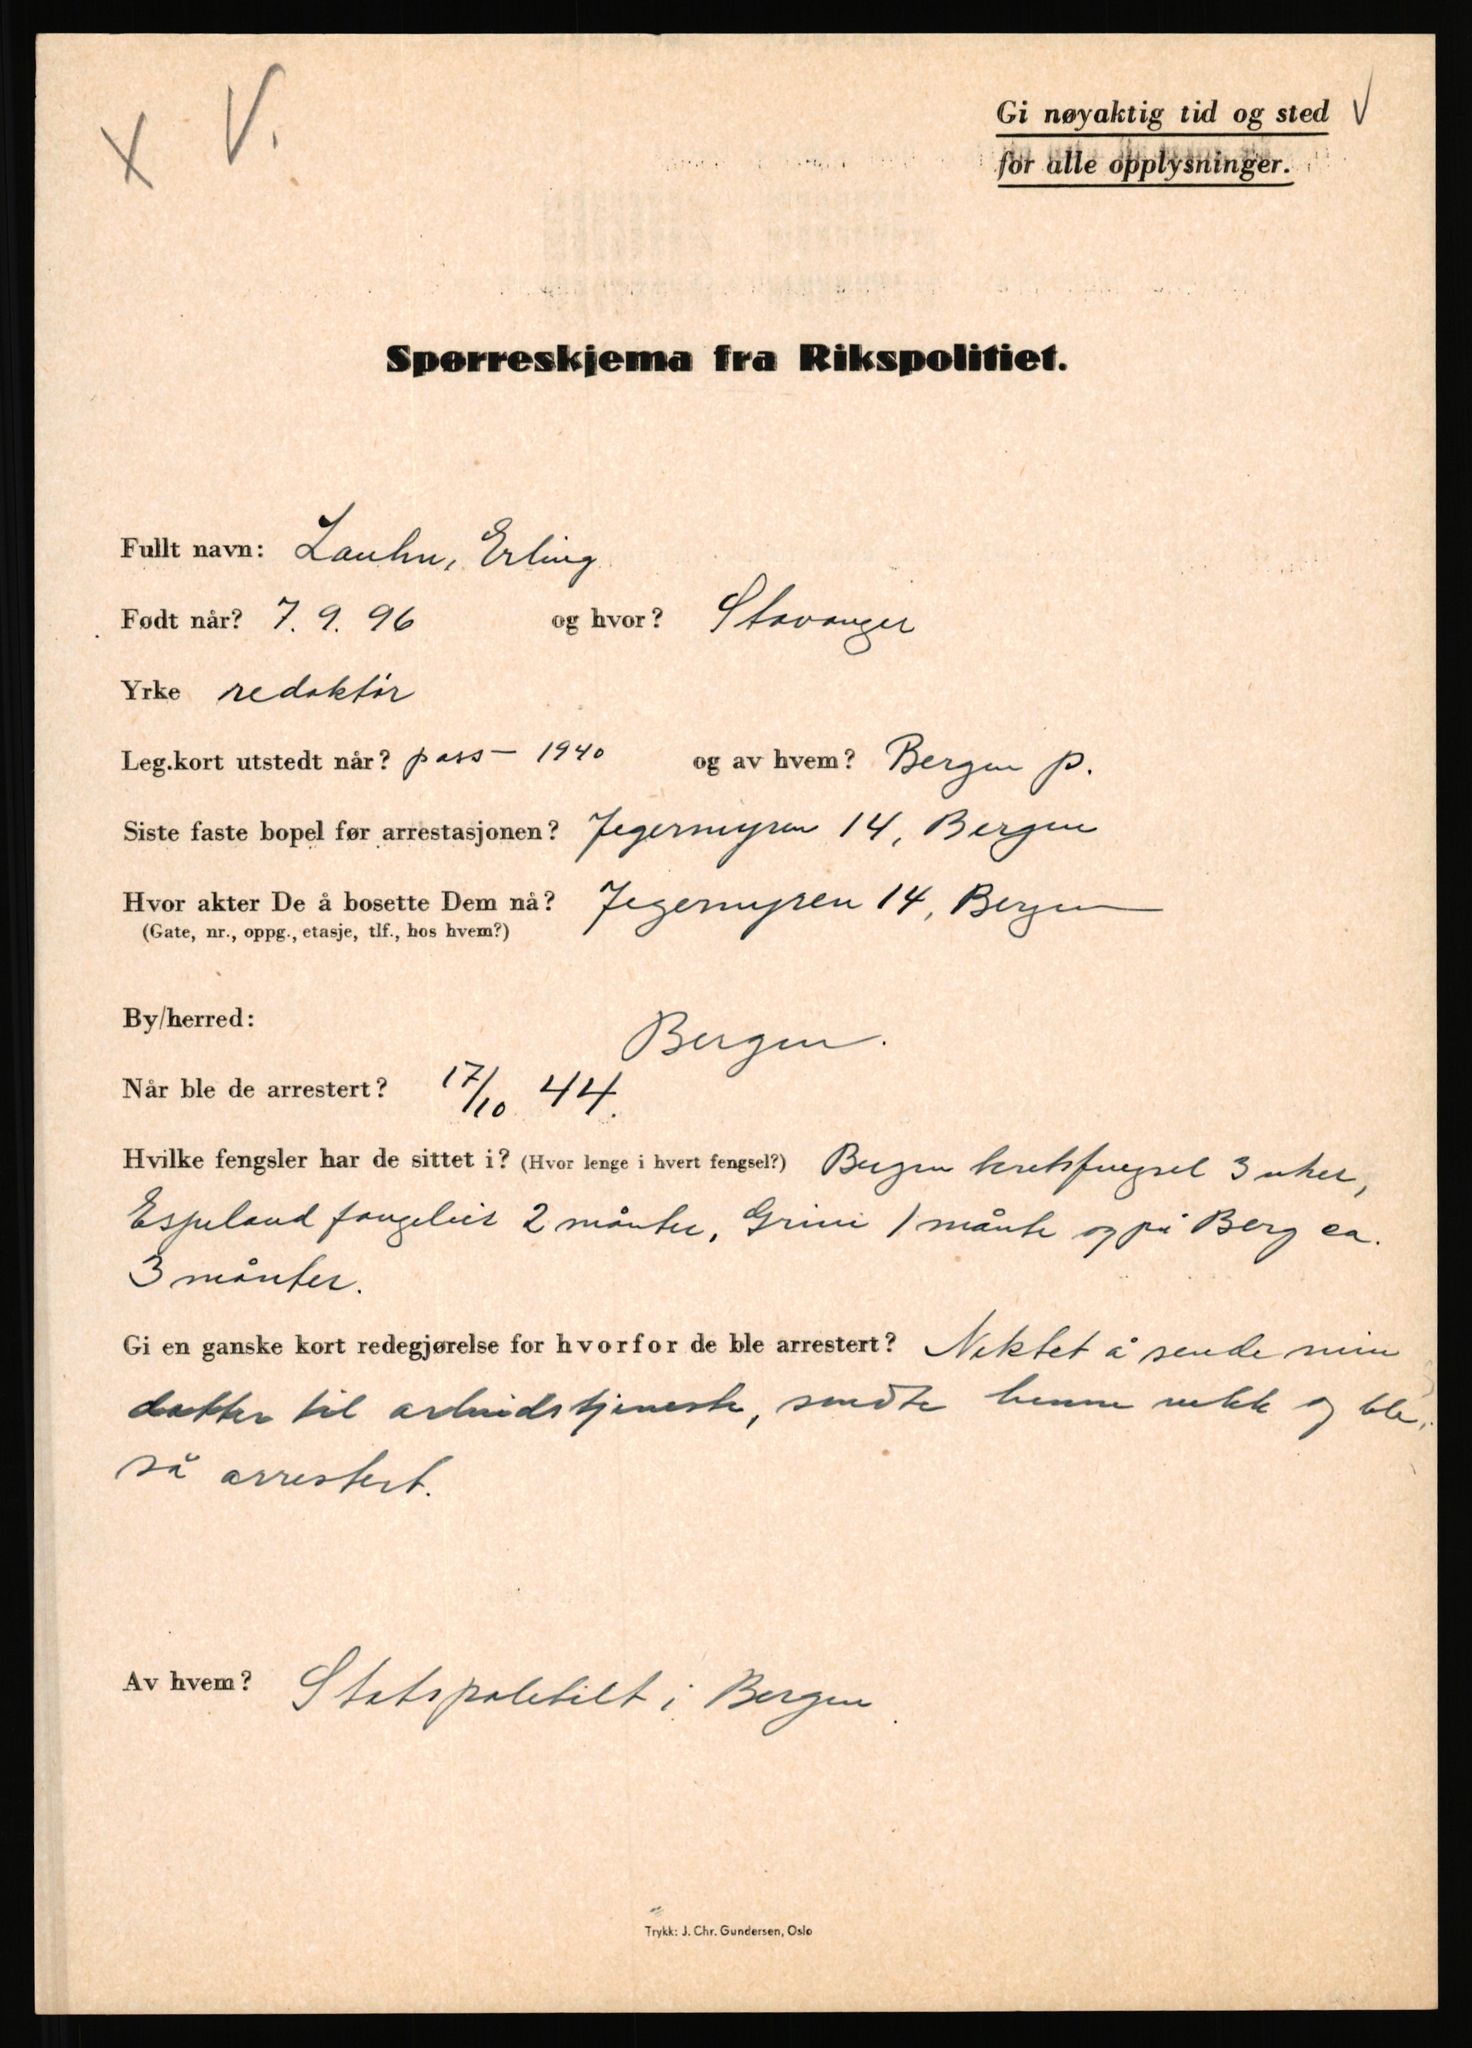 x V.
Gi nøyaktig tid og sted V
for alle opplysninger.
Spørreskjema fra Rikspolitiet.
Fullt navn: Lauhn, Erling
Født når? 7. 9. 96 og hvor? Stavanger
Yrke redaktør
Leg.kort utstedt når? pass – 1940 og av hvem? Bergen p.
Siste faste bopel før arrestasjonen? Jegermyren 14, Bergen
Hvor akter De å bosette Dem nå? Jegermyren 14, Bergen
(Gate, nr., oppg., etasje, tlf., hos hvem?)
By/herred: Bergen.
Når ble de arrestert? 17/10 44.
Hvilke fengsler har de sittet i? (Hvor lenge i hvert fengsel?) Bergen kretsfengsel 3 uker,
Espeland fangeleir 2 månter, Grini 1 månte og på Berg ca.
3 månter.
Gi en ganske kort redegjørelse for hvorfor de ble arrestert? Nektet å sende min
datter til arbeidstjeneste, sendte henne vekk og ble
så arrestert.
Av hvem? Statspolitiet i Bergen.
Trykk: J. Chr. Gundersen, Oslo